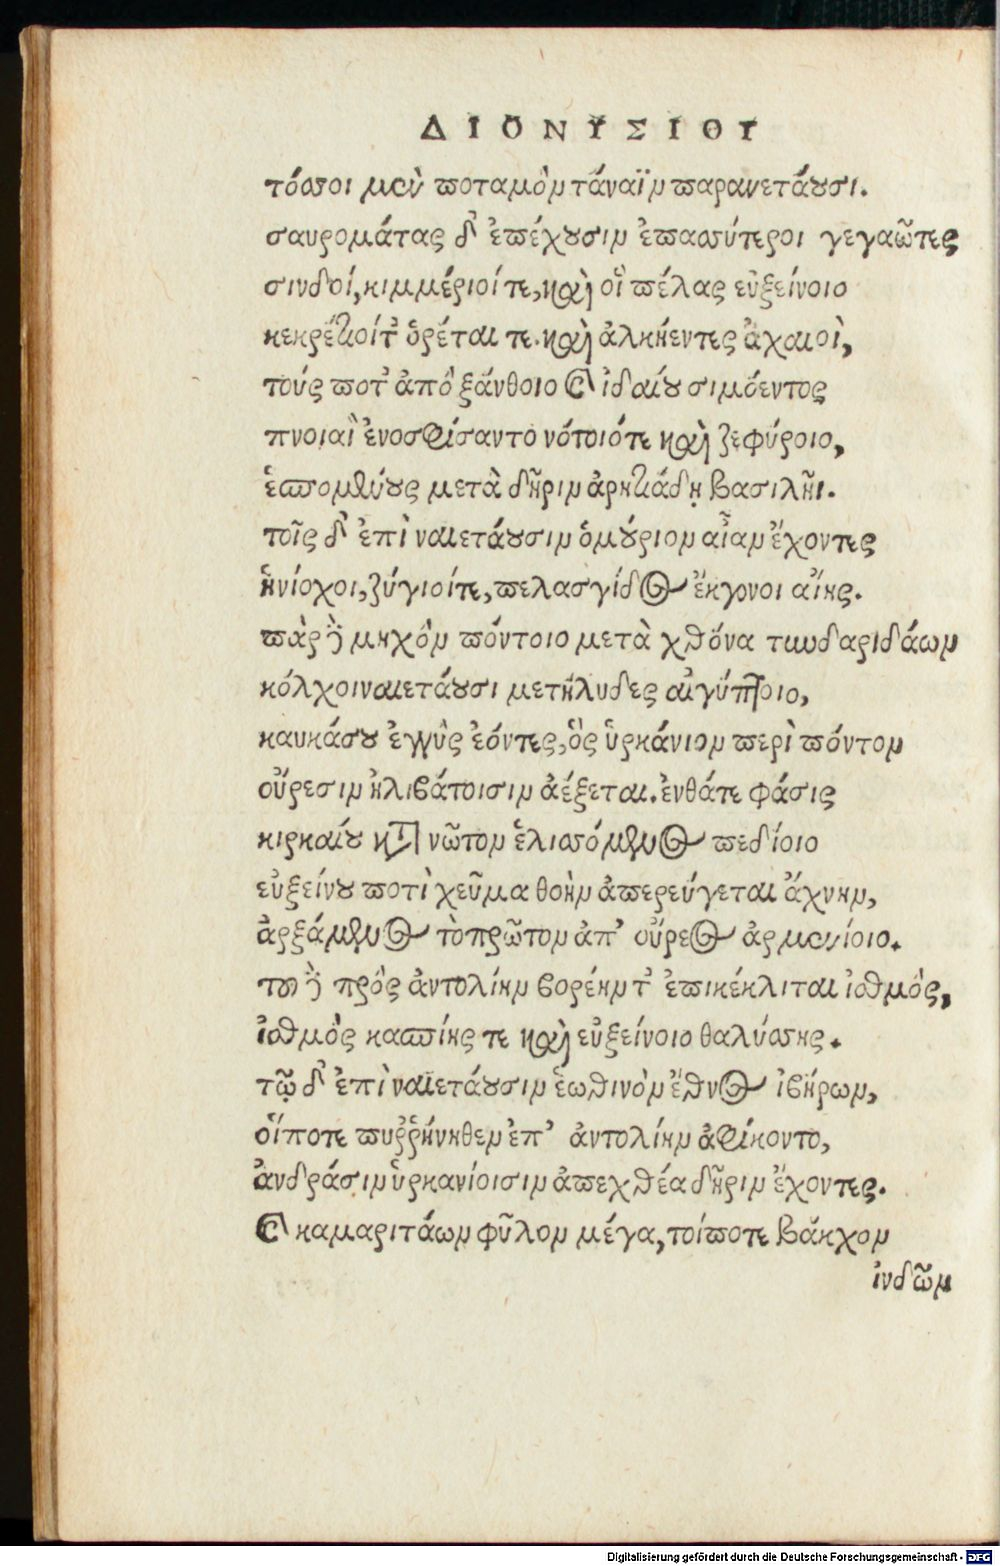 ΔΙΟΝΥΣΙΟΥ
τόσσοι μὲν ποταμὸν τάναϊν παραναιετάουσι.
σαυρομάτας δ' ἐπέχουσιν ἐπασσύτεροι γεγαῶτες
σινδοί, κιμμέριοί τε, καὶ οἳ πέλας εὐξείνοιο
κεκρέτιοί τ' ὀρέται τε. καὶ ἀλκήεντες ἀχαιοὶ,
τούς ποτ' ἀπὸ ξάνθοιο καὶ ἰδαίου σιμόεντος
πνοιαὶ ἐνοσφίσαντο νότοιό τε καὶ ζεφύροιο,
ἑσπομένους μετὰ δῆριν ἀρητιάδῃ βασιλῆι.
τοῖς δ' ἐπὶ ναιετάουσιν ὁμούριον αἶαν ἔχοντες
ἡνίοχοι, ζύγιοί τε, πελασγίδος ἔκγονοι αἴης.
πὰρ δὲ μηχὸν πόντοιο μετὰ χθόνα τυνδαριδάων
κόλχοι ναιετάουσι μετήλυδες αἰγύπτοιο,
καυκάσου ἐγγὺς ἐόντες, ὃς ὑρκάνιον περὶ πόντον
οὔρεσιν ἠλιβάτοισιν ἀέξεται. ἐνθάτε φάσις
κιρκαίου κατὰ νῶτον ἑλισσόμενος πεδίοιο
εὐξείνου ποτὶ χεῦμα θοὴν ἀπερεύγεται ἄχνην,
ἀρξάμενος τὸ πρῶτον ἀπ' οὔρεος ἀρμενίοιο.
τοῦ δὲ πρὸς ἀντολίην βορέην τ' ἐπικέκλιται ἰσθμὸς,
ἰσθμὸς κασπίης τε καὶ εὐξείνοιο θαλάσσης.
τῷ δ' ἐπὶ ναιετάουσιν ἑωθινὸν ἔθνος ἰβήρων,
οἵ ποτε πυῤῥήνηθεν ἐπ' ἀντολίην ἀφίκοντο,
ἀνδράσιν ὑρκανίοισιν ἀπεχθέα δῆριν ἔχοντες.
καὶ καμαριτάων φῦλον μέγα, τοί ποτε βάκχον
ἰνδῶν
Digitalisierung gefördert durch die Deutsche Forschungsgemeinschaft - DFG